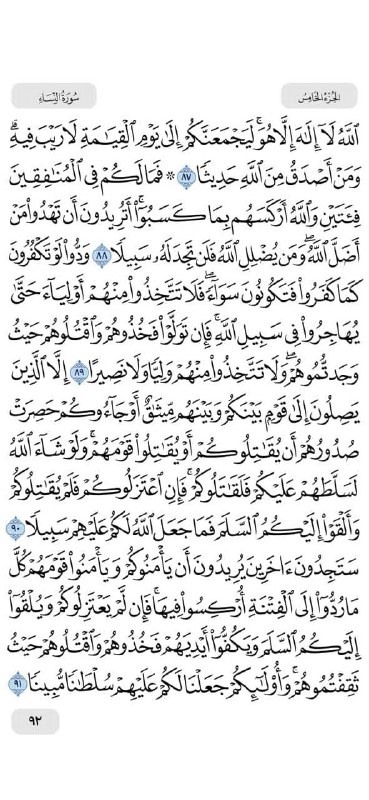 الجزء الخامس
سورة النساء
اللَّهُ لَا إِلَٰهَ إِلَّا هُوَ ۚ لَيَجْمَعَنَّكُمْ إِلَىٰ يَوْمِ الْقِيَامَةِ لَا رَيْبَ فِيهِ ۗ
وَمَنْ أَصْدَقُ مِنَ اللَّهِ حَدِيثًا ٨٧ ۞ فَمَا لَكُمْ فِي الْمُنَافِقِينَ
فِئَتَيْنِ وَاللَّهُ أَرْكَسَهُم بِمَا كَسَبُوا ۚ أَتُرِيدُونَ أَن تَهْدُوا مَنْ
أَضَلَّ اللَّهُ ۖ وَمَن يُضْلِلِ اللَّهُ فَلَن تَجِدَ لَهُ سَبِيلًا ٨٨ وَدُّوا لَوْ تَكْفُرُونَ
كَمَا كَفَرُوا فَتَكُونُونَ سَوَاءً ۖ فَلَا تَتَّخِذُوا مِنْهُمْ أَوْلِيَاءَ حَتَّىٰ
يُهَاجِرُوا فِي سَبِيلِ اللَّهِ ۚ فَإِن تَوَلَّوْا فَخُذُوهُمْ وَاقْتُلُوهُمْ حَيْثُ
وَجَدتُّمُوهُمْ ۖ وَلَا تَتَّخِذُوا مِنْهُمْ وَلِيًّا وَلَا نَصِيرًا ٨٩ إِلَّا الَّذِينَ
يَصِلُونَ إِلَىٰ قَوْمٍ بَيْنَكُمْ وَبَيْنَهُم مِّيثَاقٌ أَوْ جَاءُوكُمْ حَصِرَتْ
صُدُورُهُمْ أَن يُقَاتِلُوكُمْ أَوْ يُقَاتِلُوا قَوْمَهُمْ ۚ وَلَوْ شَاءَ اللَّهُ
لَسَلَّطَهُمْ عَلَيْكُمْ فَلَقَاتَلُوكُمْ ۚ فَإِنِ اعْتَزَلُوكُمْ فَلَمْ يُقَاتِلُوكُمْ
وَأَلْقَوْا إِلَيْكُمُ السَّلَمَ فَمَا جَعَلَ اللَّهُ لَكُمْ عَلَيْهِمْ سَبِيلًا ٩٠
سَتَجِدُونَ آخَرِينَ يُرِيدُونَ أَن يَأْمَنُوكُمْ وَيَأْمَنُوا قَوْمَهُمْ كُلَّ
مَا رُدُّوا إِلَى الْفِتْنَةِ أُرْكِسُوا فِيهَا ۚ فَإِن لَّمْ يَعْتَزِلُوكُمْ وَيُلْقُوا
إِلَيْكُمُ السَّلَمَ وَيَكُفُّوا أَيْدِيَهُمْ فَخُذُوهُمْ وَاقْتُلُوهُمْ حَيْثُ
ثَقِفْتُمُوهُمْ ۚ وَأُولَٰئِكُمْ جَعَلْنَا لَكُمْ عَلَيْهِمْ سُلْطَانًا مُّبِينًا ٩١
٩٢